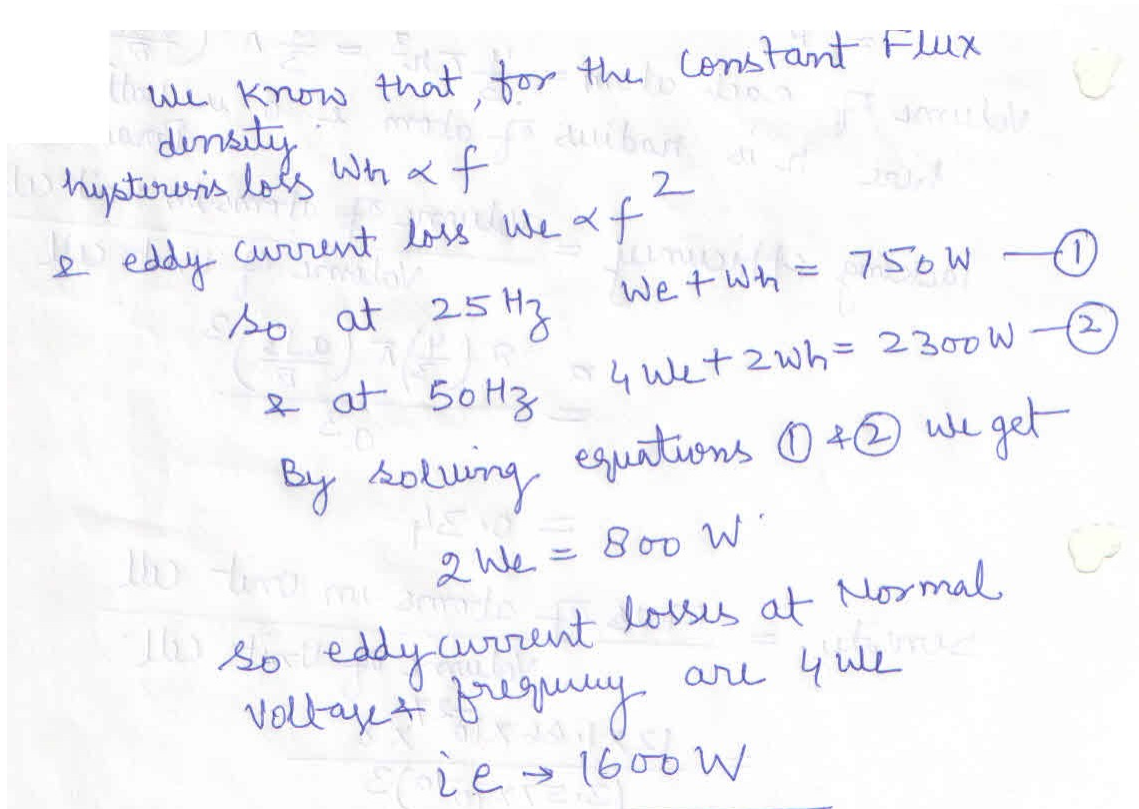 We know that, for the constant Flux
density
hysteresis loss Wh ∝ f
& eddy current loss We ∝ f²
so at 25 Hz We + Wh = 750 W — ①
& at 50 Hz 4 We + 2 Wh = 2300 W — ②
By solving equations ① & ② we get
2 We = 800 W
so eddy current losses at Normal
voltage & frequency are 4 We
i e → 1600 W